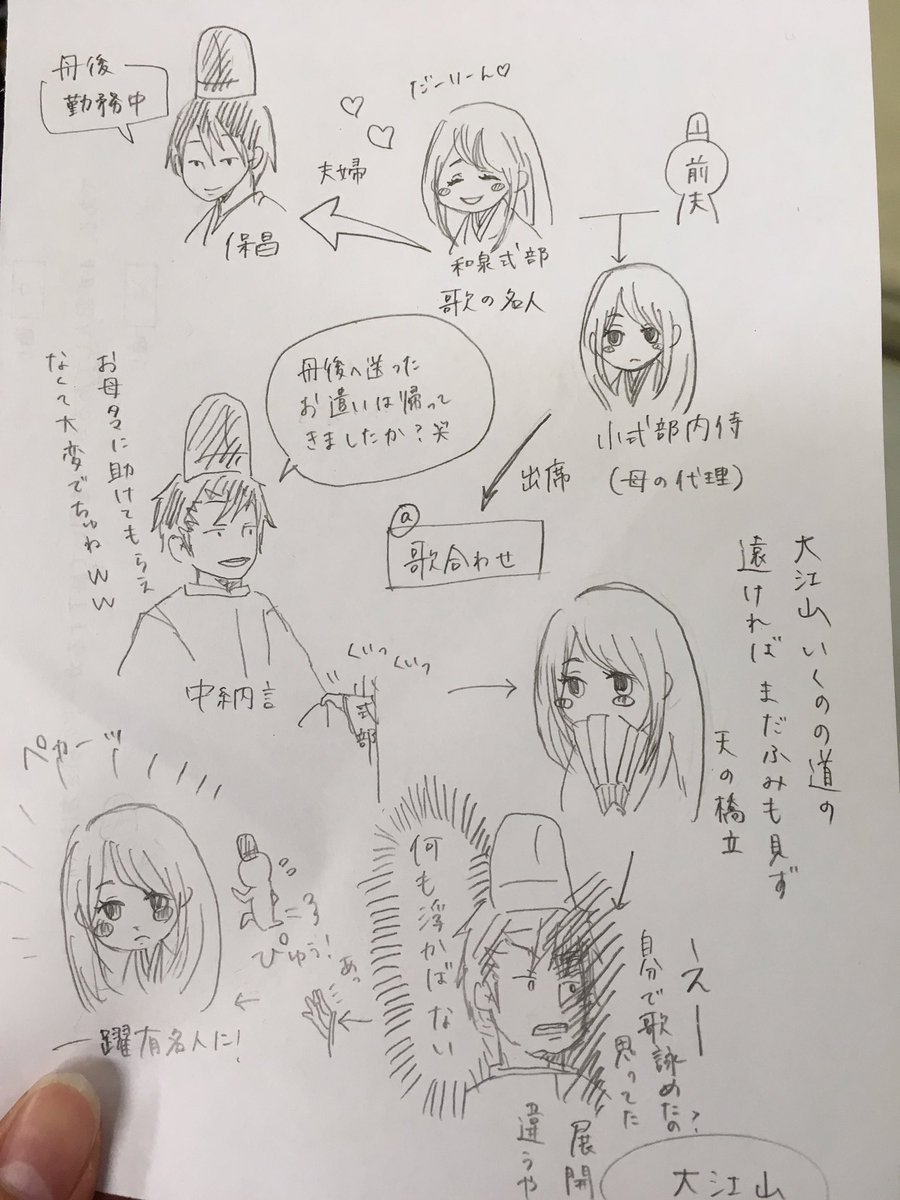 丹後
勤務中
だーりーん♡
夫婦
保昌
和泉式部
歌の名人
前
夫
小式部内侍
(母の代理)
出席
@
歌合わせ
丹後へ送った
お遣いは帰って
きましたか?笑
お母さんに助けてもらえ
なくて大変でちゅねww
中納言
ぐいっ
ぐいっ
小式部
大江山いくのの道の
遠ければまだふみも見ず
天の橋立
えーー
自分で歌詠めたの?
思ってた
展開
違うや
何も浮かばない
あっ
ぴゅう!
ペカーッ
一躍有名人に!
大江山